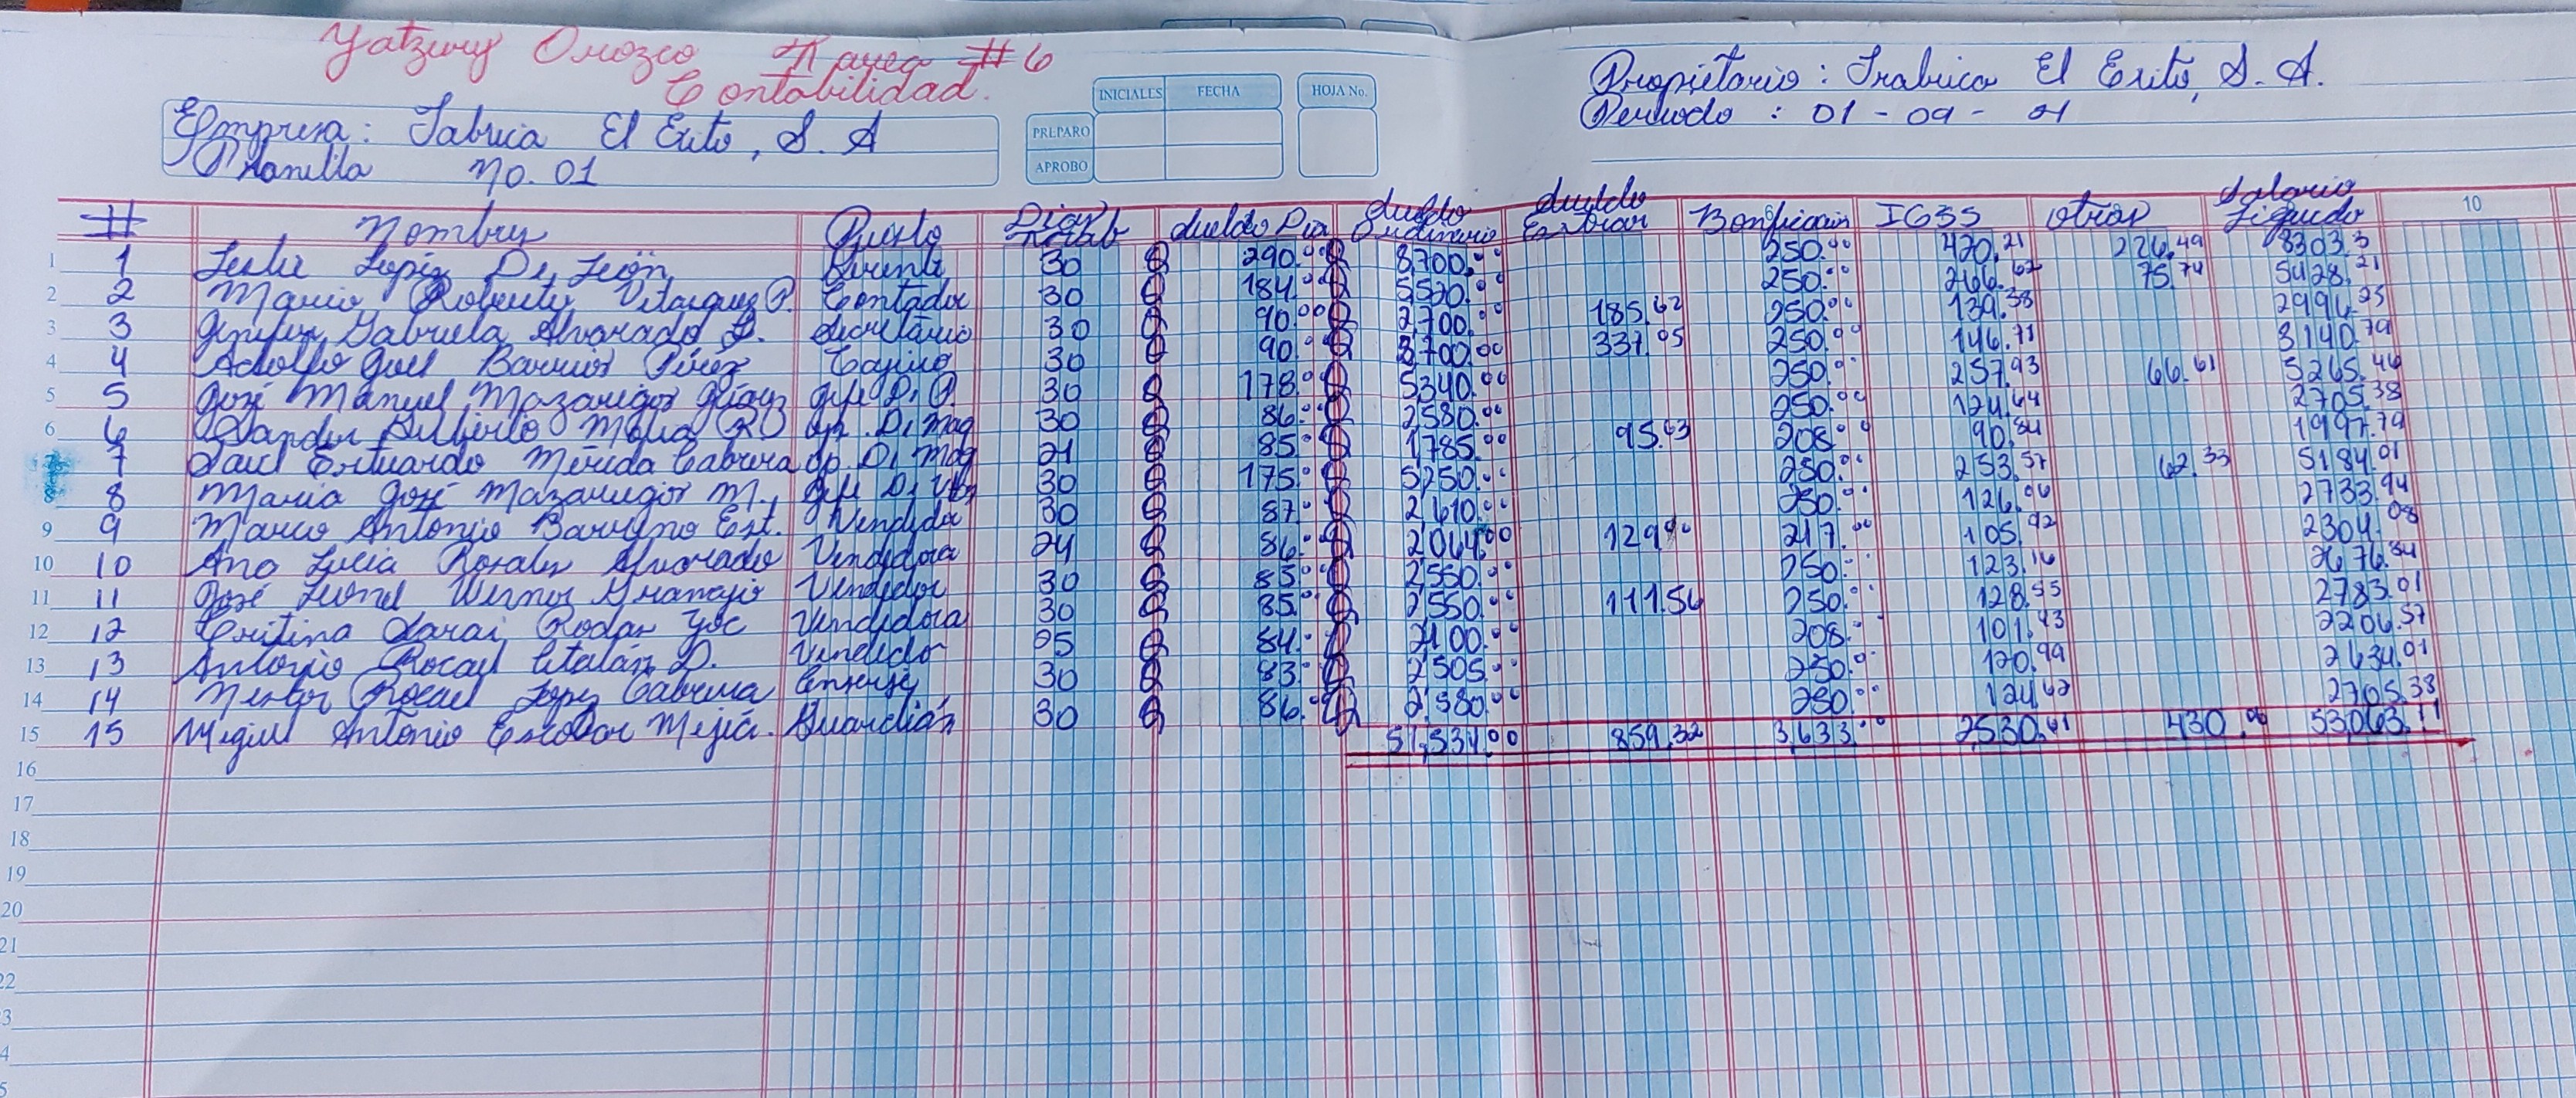 Yatzury Orozco Tarea #6
Contabilidad.
Empresa: Fabrica El Exito, S. A
Planilla No. 01
INICIALES FECHA HOJA No.
PREPARO
APROBO
Propietario: Frabrica El Exito, S. A.
Periodo: 01-09-21
# Nombre Puesto Dias Trab Sueldo Dia Sueldo Ordinario Sueldo Extraor Bonificacion IGSS otros Salario Liquido 10
1 1 Leslie Lopéz De León Gerente 30 Q 290.00 Q 8,700.00 250.00 420.21 226.49 8303.3
2 2 Mario Roberto Velasquez P. Contador 30 Q 184.00 Q 5,520.00 250.00 266.62 75.74 5428.21
3 3 Jenifer Gabriela Alvarado D. Secretario 30 Q 90.00 Q 2,700.00 185.62 250.00 139.38 2996.25
4 4 Adolfo Joel Barrios Pérez Cajero 30 Q 90.00 Q 2,700.00 337.05 250.00 146.71 3140.79
5 5 José Manuel Mazariegos Jefe D. P. 30 Q 178.00 Q 5340.00 250.00 257.93 66.61 5265.46
6 6 Sander Op. De Maq 30 Q 86.00 Q 2,580.00 250.00 124.64 2705.38
7 7 Saul Estuardo Merida Cabrera Op. De Maq 21 Q 85.00 Q 1,785.00 95.63 208.00 90.84 1997.79
8 8 Maria José Mazariegos M. Jefe De Ven 30 Q 175.00 Q 5250.00 250.00 253.57 62.33 5184.01
9 9 Marco Antonio Barreno Est. Vendedor 30 Q 87.00 Q 2,610.00 250.00 126.06 2733.94
10 10 Ana Lucia Rosales Alvarado Vendedora 24 Q 86.00 Q 2,064.00 129.00 217.00 105.92 2304.08
11 11 José Leonel Werner Gramajo Vendedor 30 Q 85.00 Q 2,550.00 250.00 123.16 2676.84
12 12 Critina Sarai Rodas Yoc Vendedora 30 Q 85.00 Q 2,550.00 111.56 250.00 128.55 2783.01
13 13 Antonio Rocael Catalán D. Vendedor 25 Q 84.00 Q 2,100.00 208.00 101.43 2206.57
14 14 Nestor Rocael Lopez Cabrera Conserje 30 Q 83.00 Q 2,505.00 250.00 120.99 2634.01
15 15 Miguel Antonio Escobar Mejía. Guardián 30 Q 86.00 Q 2,580.00 250.00 124.62 2705.38
51,534.00 859.32 3,633.00 2,530.61 430.96 53,063.11
16
17
18
19
20
21
22
3
4
5